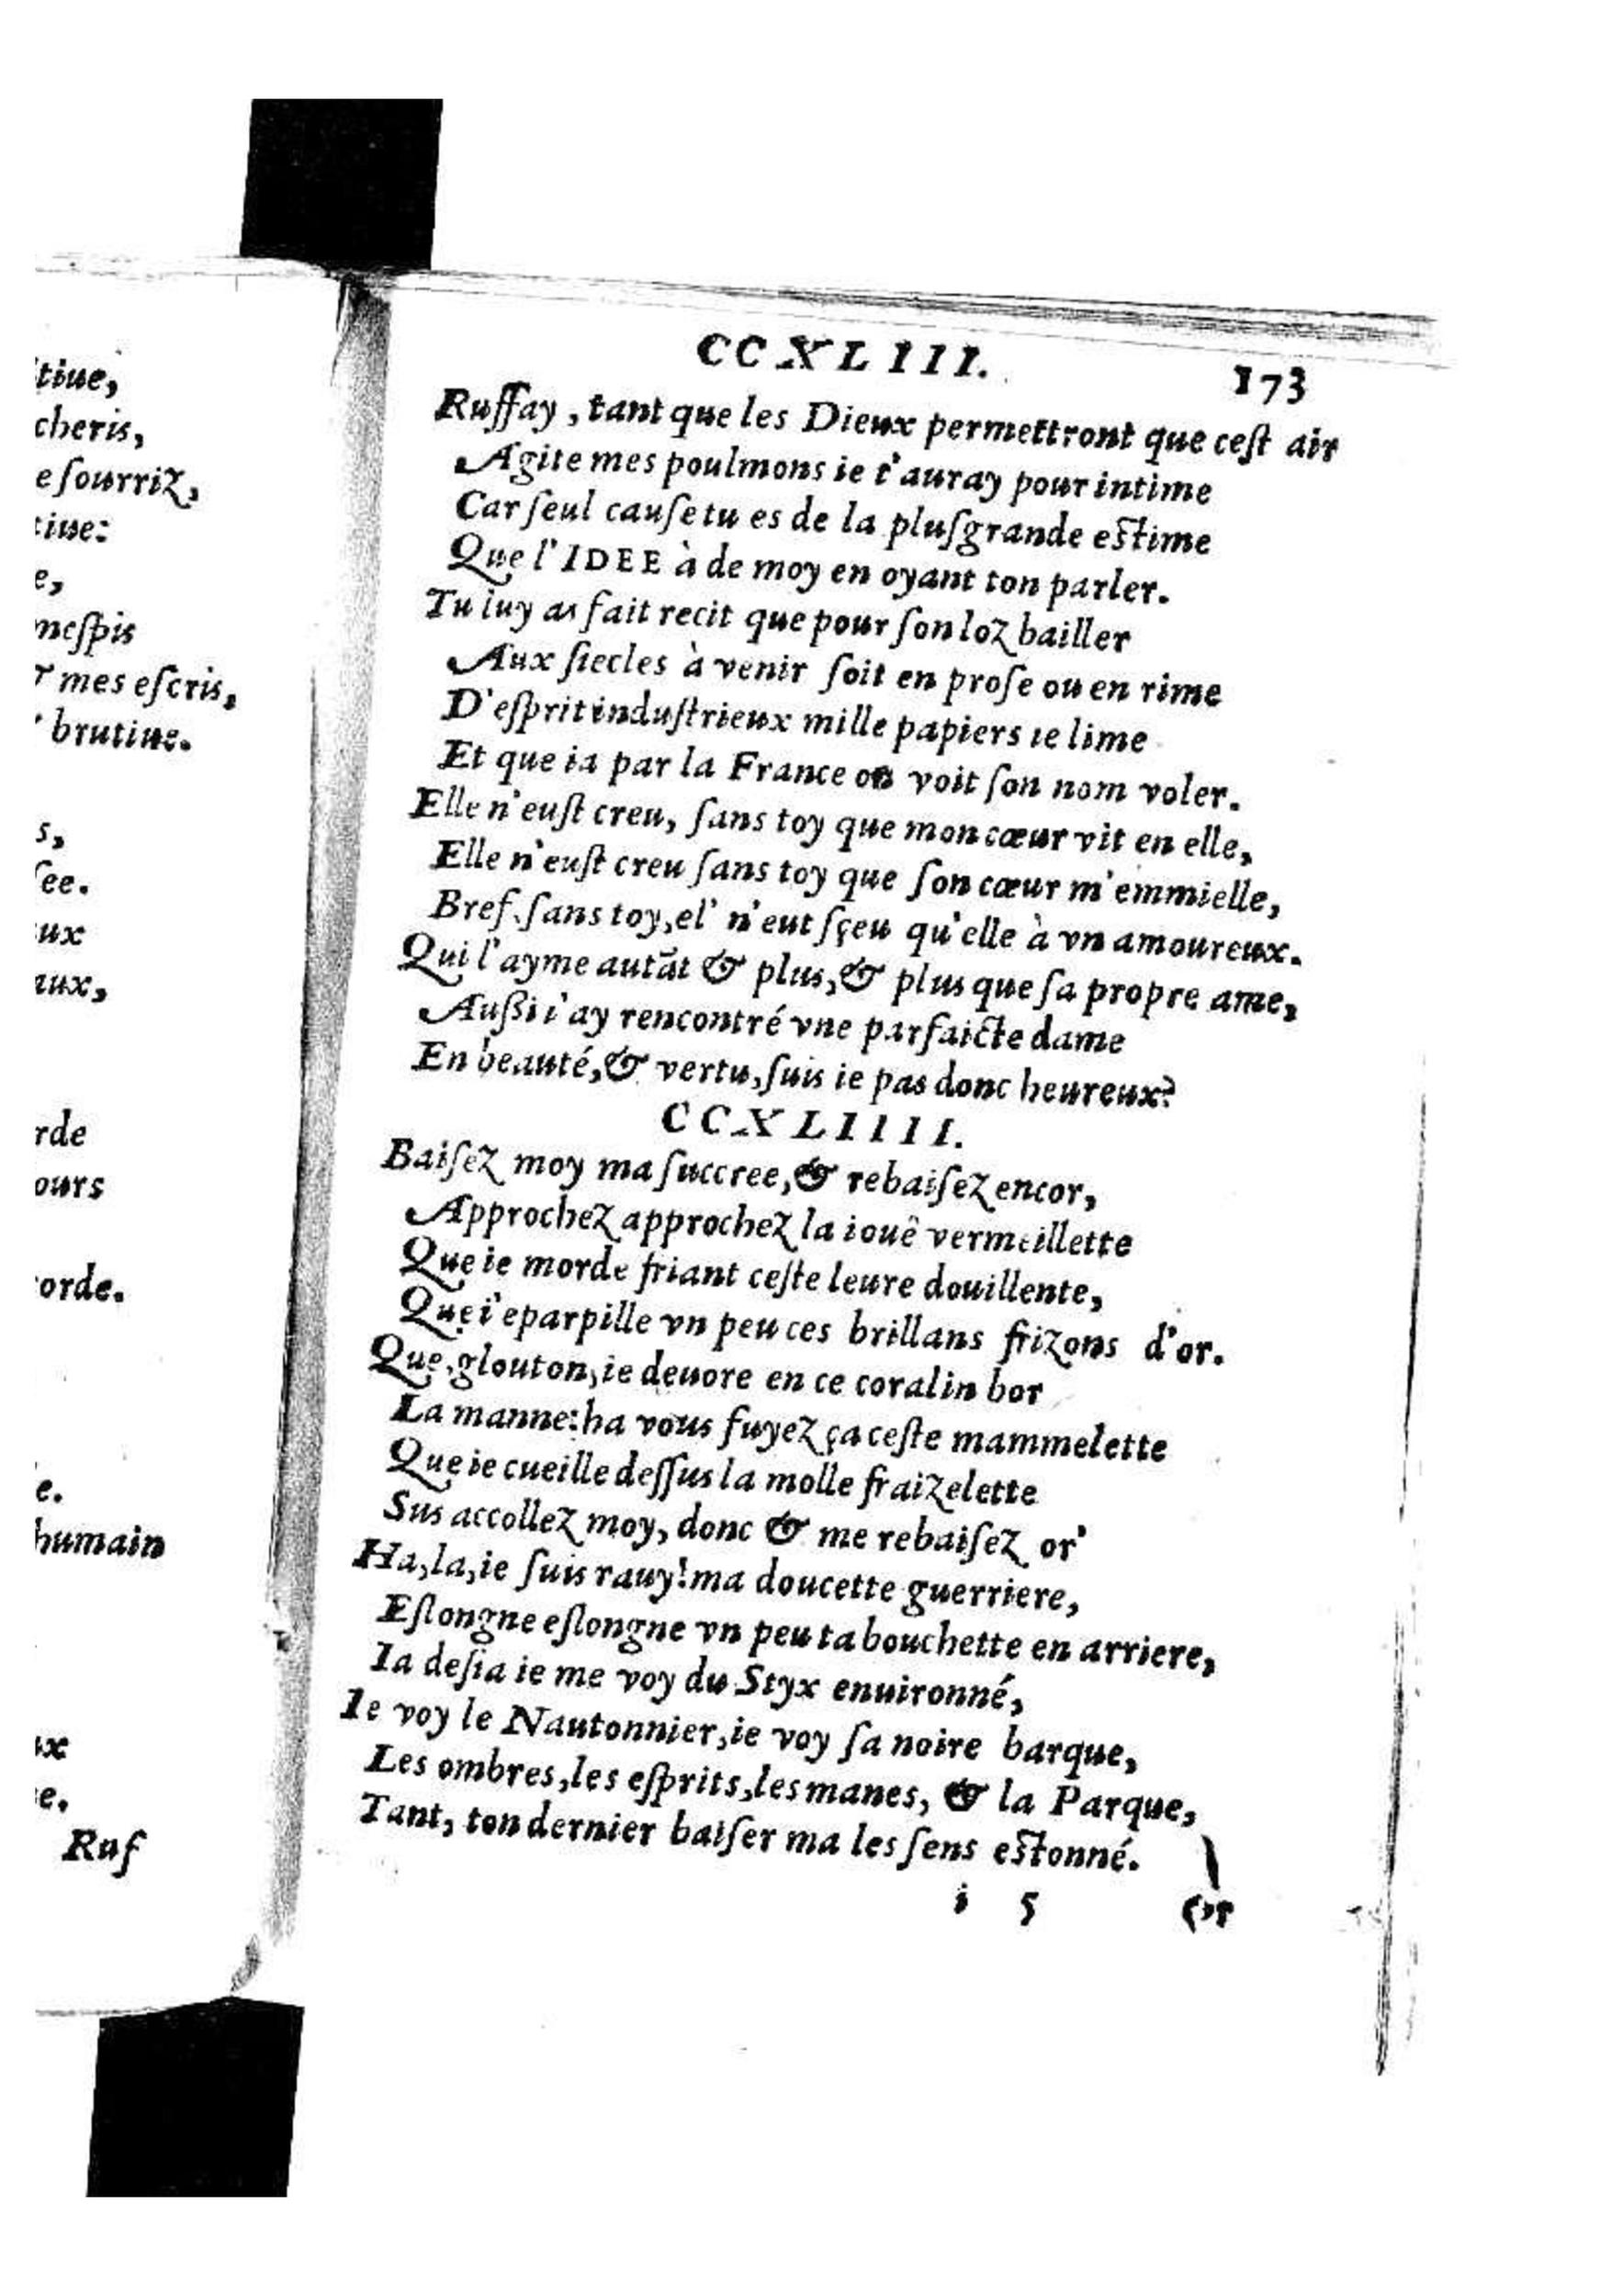 tiue,
cheris,
e ſourriz,
tiue:
e,
meſpis
& mes eſcris,
brutiue.
s,
ſee.
ux
aux,
rde
ours
orde.
e.
humain
ux
e.
Ruf
CCXLIII.
173
Ruffay, tant que les Dieux permettront que ceſt air
Agite mes poulmons ie t'auray pour intime
Car ſeul cauſe tu es de la pluſgrande eſtime
Que l'IDEE à de moy en oyant ton parler.
Tu luy as fait recit que pour ſon loz bailler
Aux ſiecles à venir ſoit en proſe ou en rime
D'eſprit induſtrieux mille papiers ie lime
Et que ia par la France on voit ſon nom voler.
Elle n'euſt creu, ſans toy que mon cœur vit en elle,
Elle n'euſt creu ſans toy que ſon cœur m'emmielle,
Bref, ſans toy, el' n'eut ſçeu qu'elle à vn amoureux.
Qui l'ayme autãt & plus, & plus que ſa propre ame,
Auſſi i'ay rencontré vne parfaicte dame
En beauté, & vertu, ſuis ie pas donc heureux?
CCXLIIII.
Baiſez moy ma ſuccree, & rebaiſez encor,
Approchez approchez la iouë vermeillette
Que ie morde friant ceſte leure douillente,
Que i'eparpille vn peu ces brillans frizons d'or.
Que, glouton, ie deuore en ce coralin bor
La manne: ha vous fuyez ça ceſte mammelette
Que ie cueille deſſus la molle fraizelette
Sus accollez moy, donc & me rebaiſez or'
Ha, la, ie ſuis rauy! ma doucette guerriere,
Eſlongne eſlongne vn peu ta bouchette en arriere,
Ia deſia ie me voy du Styx enuironné,
Ie voy le Nautonnier, ie voy ſa noire barque,
Les ombres, les eſprits, les manes, & la Parque,
Tant, ton dernier baiſer ma les ſens eſtonné.
i 5